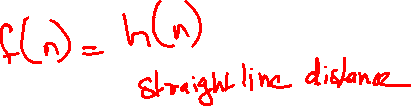 f(n) = h(n)
straight line distance